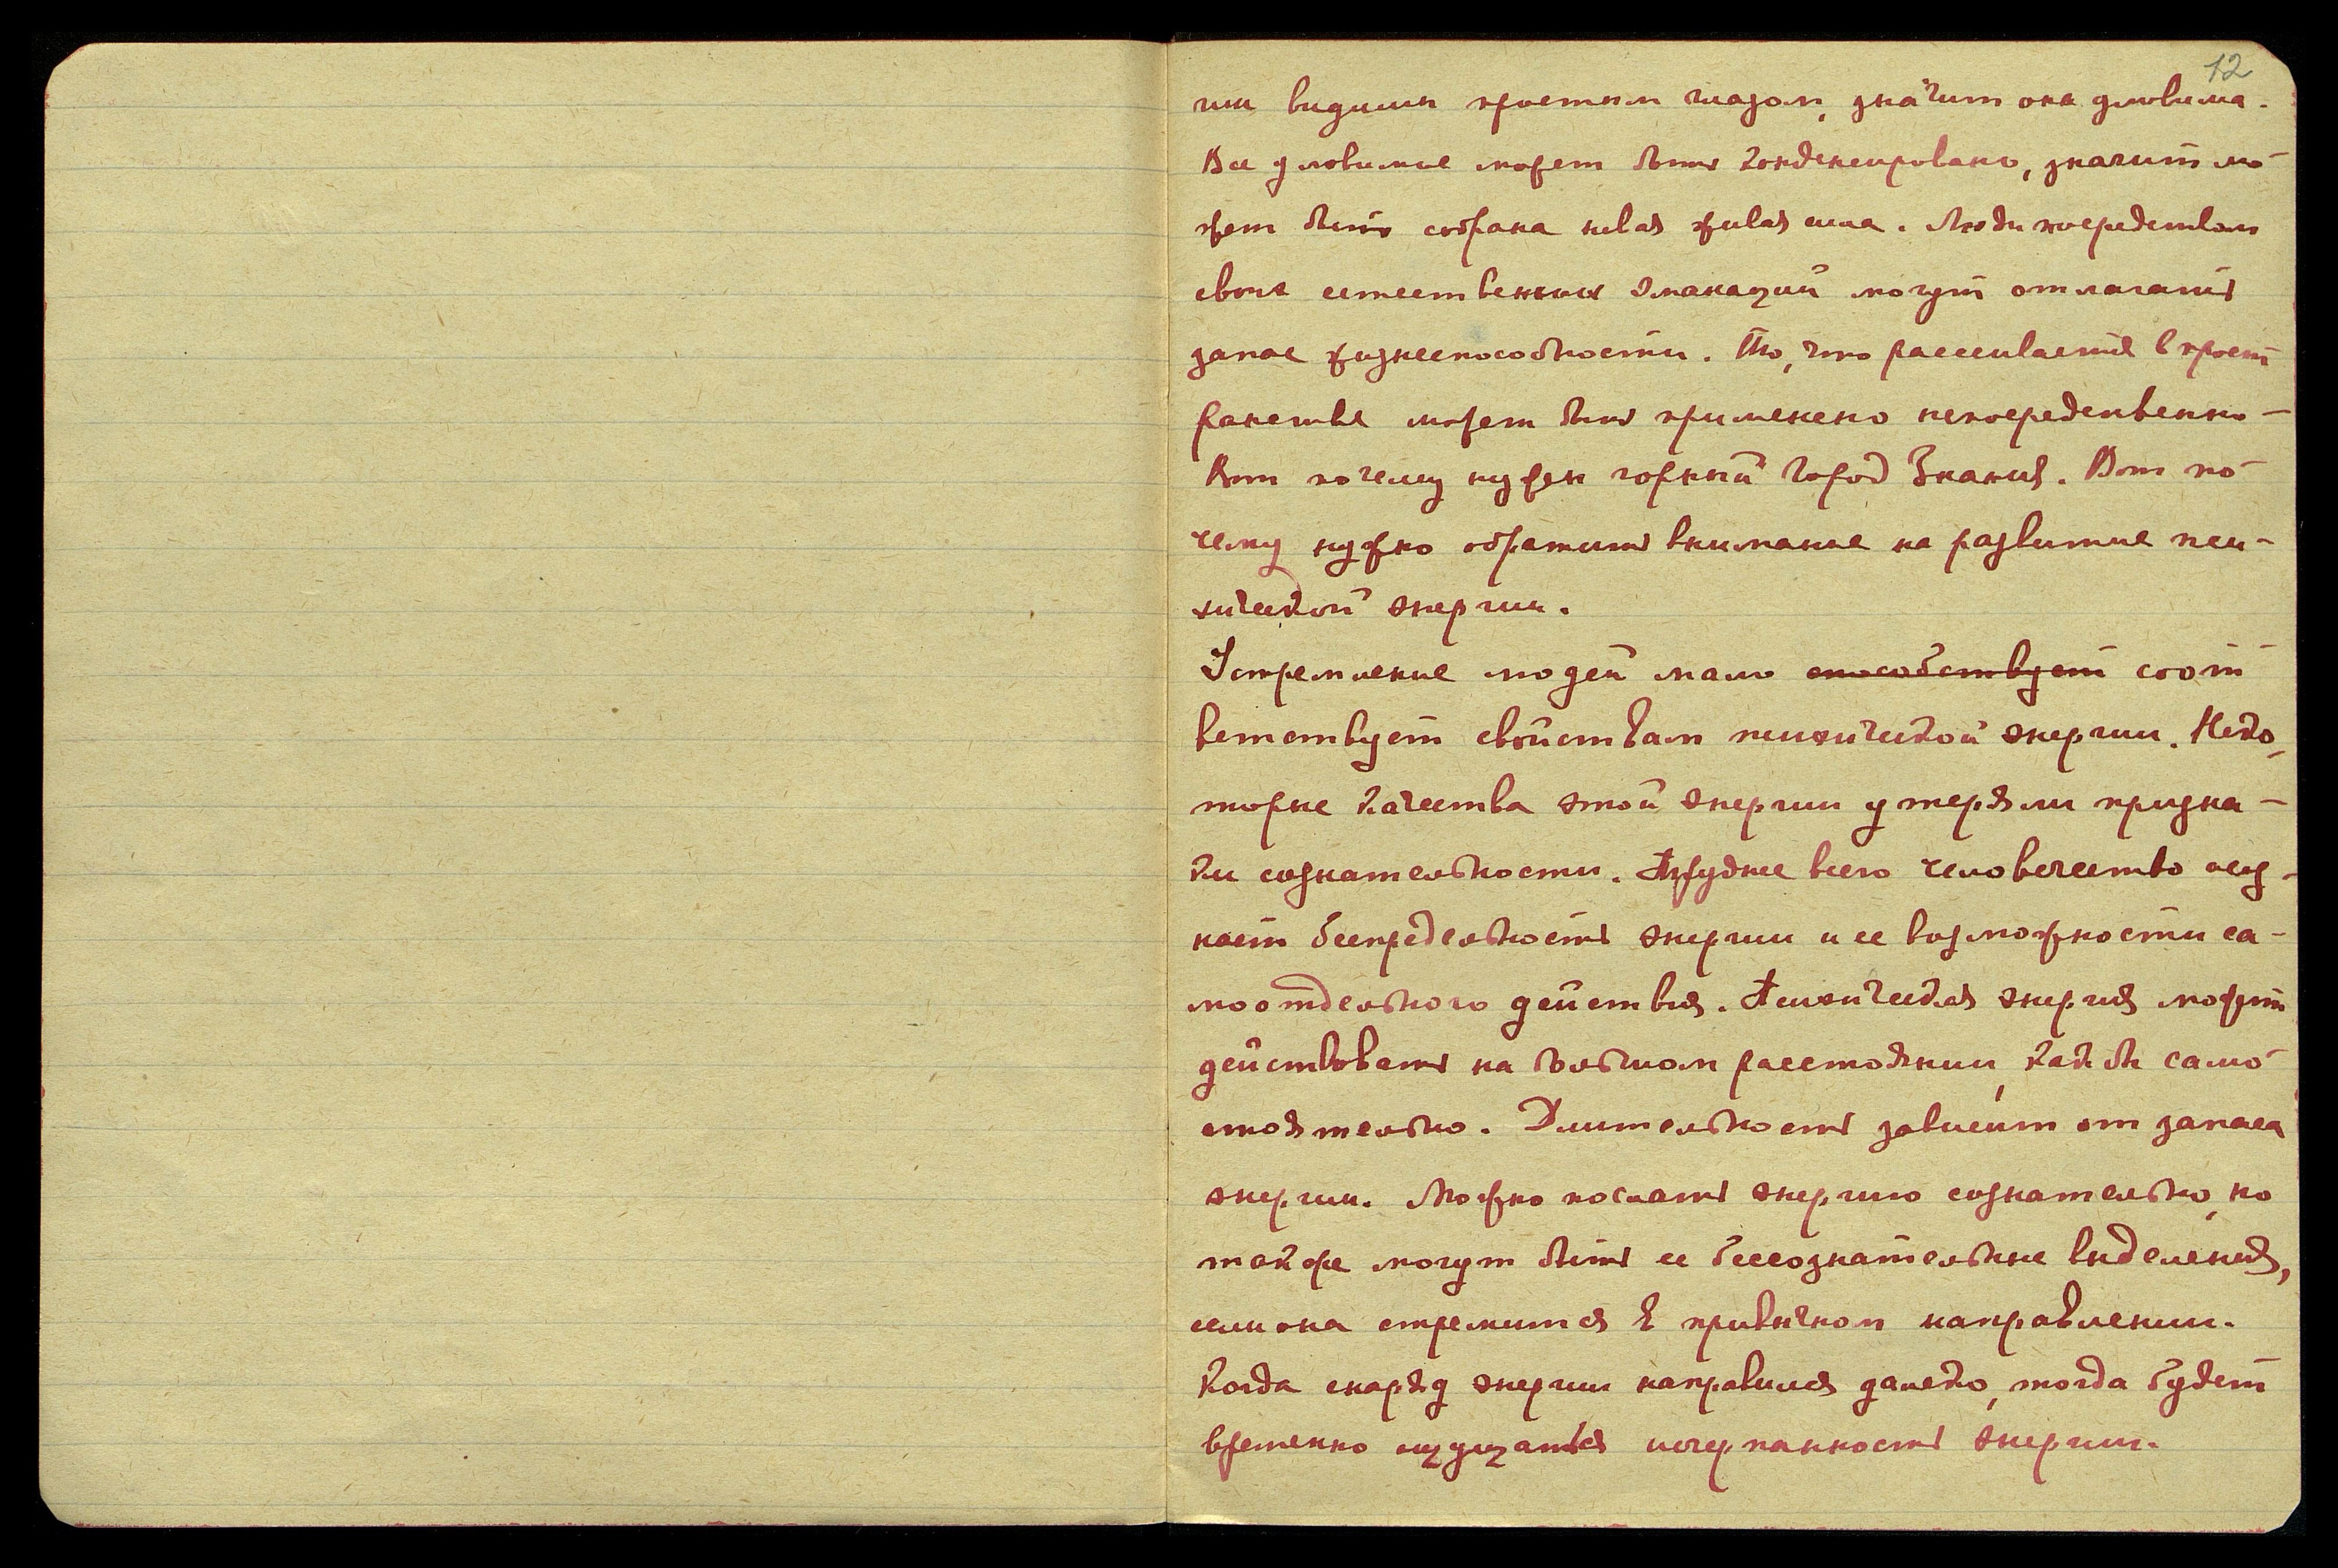 12
гии видимы простым глазом, значит она уловима.
Все уловимое может быть конденсировано, значит мо-
жет быть собрана новая живая сила. Люди посредством
своих естественных эманаций могут отлагать
запас жизнеспособности. То, что рассеивается в прост
ранстве может быть применено непосредственно –
Вот почему нужен горный город Знания. Вот по-
чему нужно обратить внимание на развитие пси-
хической энергии.
Устремление людей мало способствует соот
ветствует свойствам психической энергии. Неко-
торые качества этой энергии утеряли призна-
ки сознательности. Труднее всего человечество осоз-
нает беспредельность энергии и ее возможности са-
моотдельного действия. Психическая энергия может
действовать на большом расстоянии, как бы само-
стоятельно. Длительность зависит от запаса
энергии. Можно послать энергию сознательно, но
также могут быть ее бессознательные выделения,
если она стремится в привычном направлении.
Когда снаряд энергии направился далеко, тогда будет
временно ощущаться исчерпанность энергии.